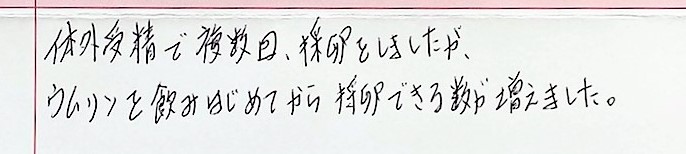 体外受精で複数回、採卵をしましたが、
ウムリンを飲みはじめてから採卵できる数が増えました。